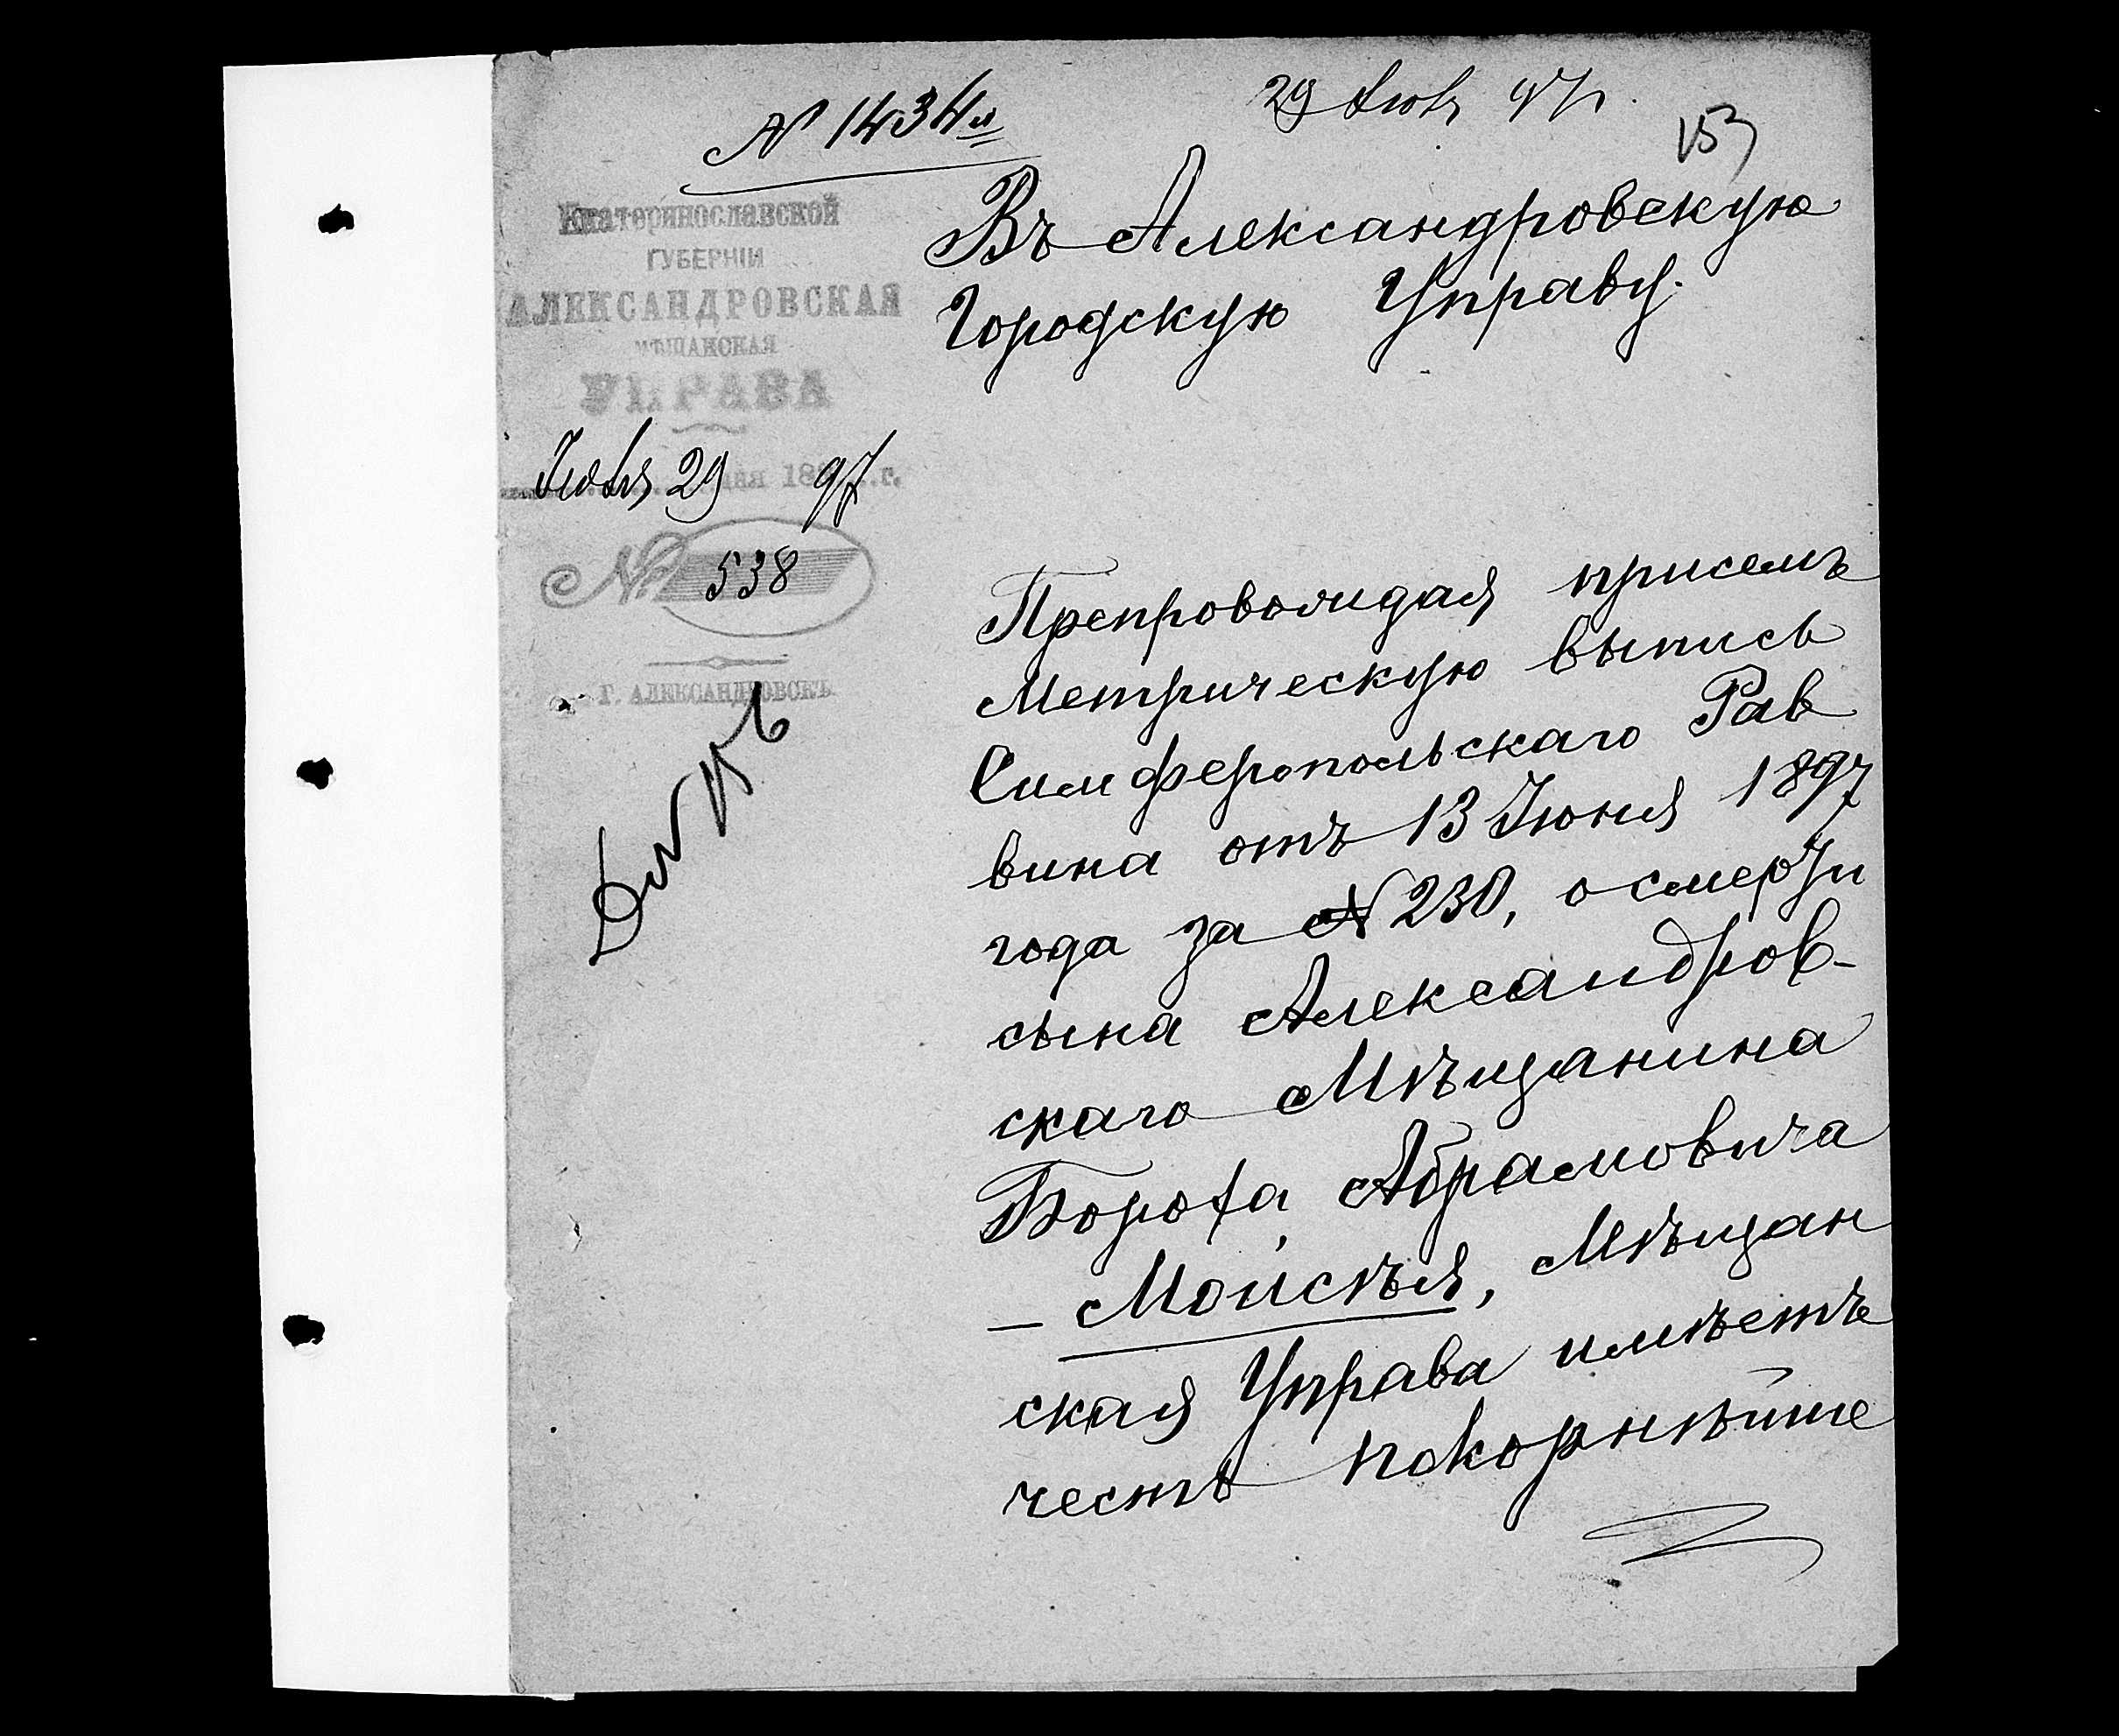 № 1434
29 Июля 97 г.
153
Екатеринославской
ГУБЕРНІИ
АЛЕКСАНДРОВСКАЯ
МѢЩАНСКАЯ
УПРАВА
Июля 29 дня 1897 г.
№ 538
Г. АЛЕКСАНДРОВСКЪ
Въ Александровскую
Городскую Управу.
Препровождая присемъ
метрическую выпись
Симферопольскаго Рав
вина отъ 13 Июня 1897
года за № 230, о смерти
сына Александров-
скаго Мѣщанина
Бороха Абрамовича
- Моисѣя, Мѣщан
ская Управа имѣетъ
честь покорнѣйше